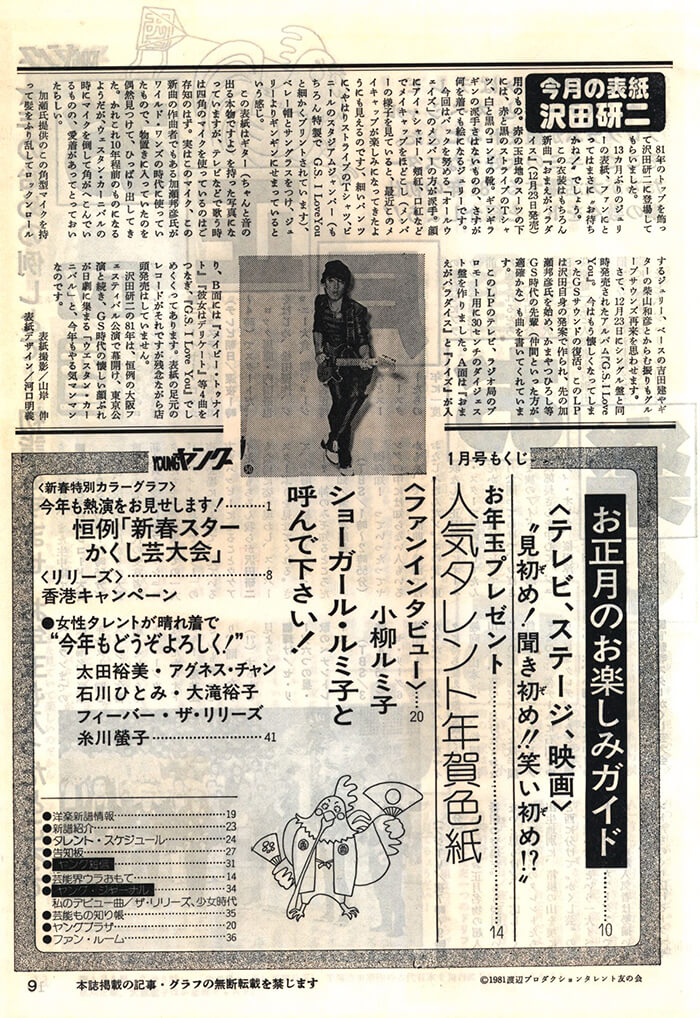 今月の表紙
沢田研二
81年のトップを飾っ
て沢田研二に登場して
もらいました。
13カ月ぶりのジュリ
ーの表紙、ファンにと
ってはまさに〝お待ち
かね!〟でしょう。
この衣装はもちろん
新曲『おまえがパラダ
イス』(12月23日発売)
用のもの。赤の玉虫地のスーツの下
には、赤と黒のストライプのTシャ
ツ、白と黒のコンビの靴。ギンギラ
ギンの派手さはないものの、さすが
何を着ても絵になるジュリーです。
今回はバックを努める『オールウ
ェイズ』のメンバーの方が派手。顔
にアイシャドー、頰紅、口紅などな
でメイキャップをほどこし(メンバ
ーの様子を見ていると、最近このメ
イキャップが楽しみになってきたよ
うにも見えるのです)、細いパンツ
にやはりストライプのTシャツ、ビ
ニールのスタジアムジャンパー(も
ちろん特製で G.S. I Love You
と細かくプリントされています)、
ベレー帽とサングラスをつけ、ジュ
リーよりギンギンにせまっていると
いう感じ。
この表紙はギター(ちゃんと音の
出る本物ですよ)を持った写真にな
っていますが、テレビなどで歌う時
は四角のマイクを使っているのはご
存知のはず。実はこのマイク、この
新曲の作曲者でもある加瀬邦彦氏が
ワイルド・ワンズの時代に使ってい
たもので、物置きに入っていたのを
偶然見つけて、ひっぱり出してき
た。かれこれ10年程前のものになる
ようだが、ウェスタン・カーニバルの
時にマイクを倒して角が、へこんでい
るものの、愛着があってとっておい
たらしい。
加瀬氏提供のこの角型マイクを持
って髪をふり乱してロックンロール
するジュリー、ベースの吉田建やギ
ターの柴山和彦とからむ振りもグル
ープサウンズ再来を思わせます。
さて、12月23日にシングル盤と同
時発売されたアルバム『G.S. I Love
You』。今はもう懐しくなってしま
ったGSサウンドの復活。このLP
は沢田自身の発案で作られ、先の加
瀬邦彦氏を始め、かまやつひろし等
GS時代の先輩(仲間といった方が
適確かな)も曲を書いてくれていま
す。
このLPのテレビ、ラジオ局のプ
ロモート用に30センチのダイジェス
ト盤を作りました。A面は『おま
えがパラダイス』と『ノイズ』が入
り、B面には『メイビー・トゥナイ
ト』『彼女はデリケート』等4曲を
つなぎ、『G.S. I Love You』でし
めくくってあります。表紙の足元の
レコードがそれですが残念ながら店
頭発売はしていません。
沢田研二の81年は、恒例の大阪フ
ェスティバル公演で幕開け、東京公
演と続き、GS時代の懐しい顔ぶれ
が日劇に集まる『ウエスタン・カー
ニバル』と、今年もやる気マンマン
なのです。
表紙撮影/山岸 伸
表紙デザイン/河口明義
YOUNGヤング
1月号もくじ
お正月のお楽しみガイド……10
〈テレビ、ステージ、映画〉
〝見初め!聞き初め!!笑い初め!?〟
お年玉プレゼント
人気タレント年賀色紙……14
〈ファンインタビュー〉……20
小柳ルミ子
ショーガール・ルミ子と
呼んで下さい!
〈新春特別カラーグラフ〉
今年も熱演をお見せします!……1
恒例「新春スター
かくし芸大会」
〈リリーズ〉……8
香港キャンペーン
●女性タレントが晴れ着で
〝今年もどうぞよろしく!〟
太田裕美・アグネス・チャン
石川ひとみ・大滝裕子
フィーバー・ザ・リリーズ
糸川螢子……41
●洋楽新譜情報……19
●新譜紹介……23
●タレント・スケジュール……24
●告知板……27
●ヤング短信……31
●芸能界ウラおもて……14
●ヤング・ジャーナル……34
私のデビュー曲/ザ・リリーズ、少女時代
●芸能もの知り帳……35
●ヤングプラザ……20
●ファン・ルーム……36
9
本誌掲載の記事・グラフの無断転載を禁じます
©1981渡辺プロダクションタレント友の会